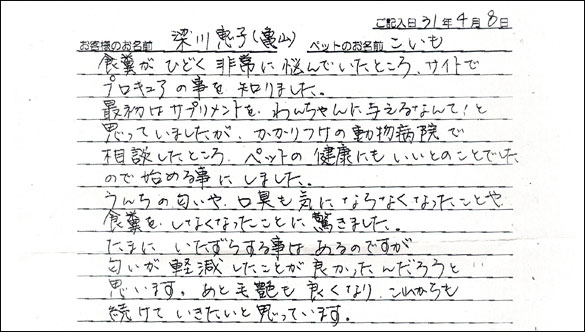 ご記入日 31年 4月 8日
お客様のお名前 深川 恵子(亀山) ペットのお名前 こいも
食糞が ひどく 非常に 悩んでいたところ、サイトで
プロキュアの事を 知りました。
最初は サプリメントを、わんちゃんに与えるなんて!と
思っていましたが、かかりつけの 動物病院で
相談したところ、ペットの 健康にも いいとのことでした
ので 始める事に しました。
うんちの 匂いや、口臭も 気に ならなくなったことや
食糞を、しなくなったことに 驚きました。
たまに いたずらする事は あるのですが
匂いが 軽減したことが 良かったんだろうと
思います。あと 毛艶も 良くなり、これからも
続けて いきたいと 思っています。